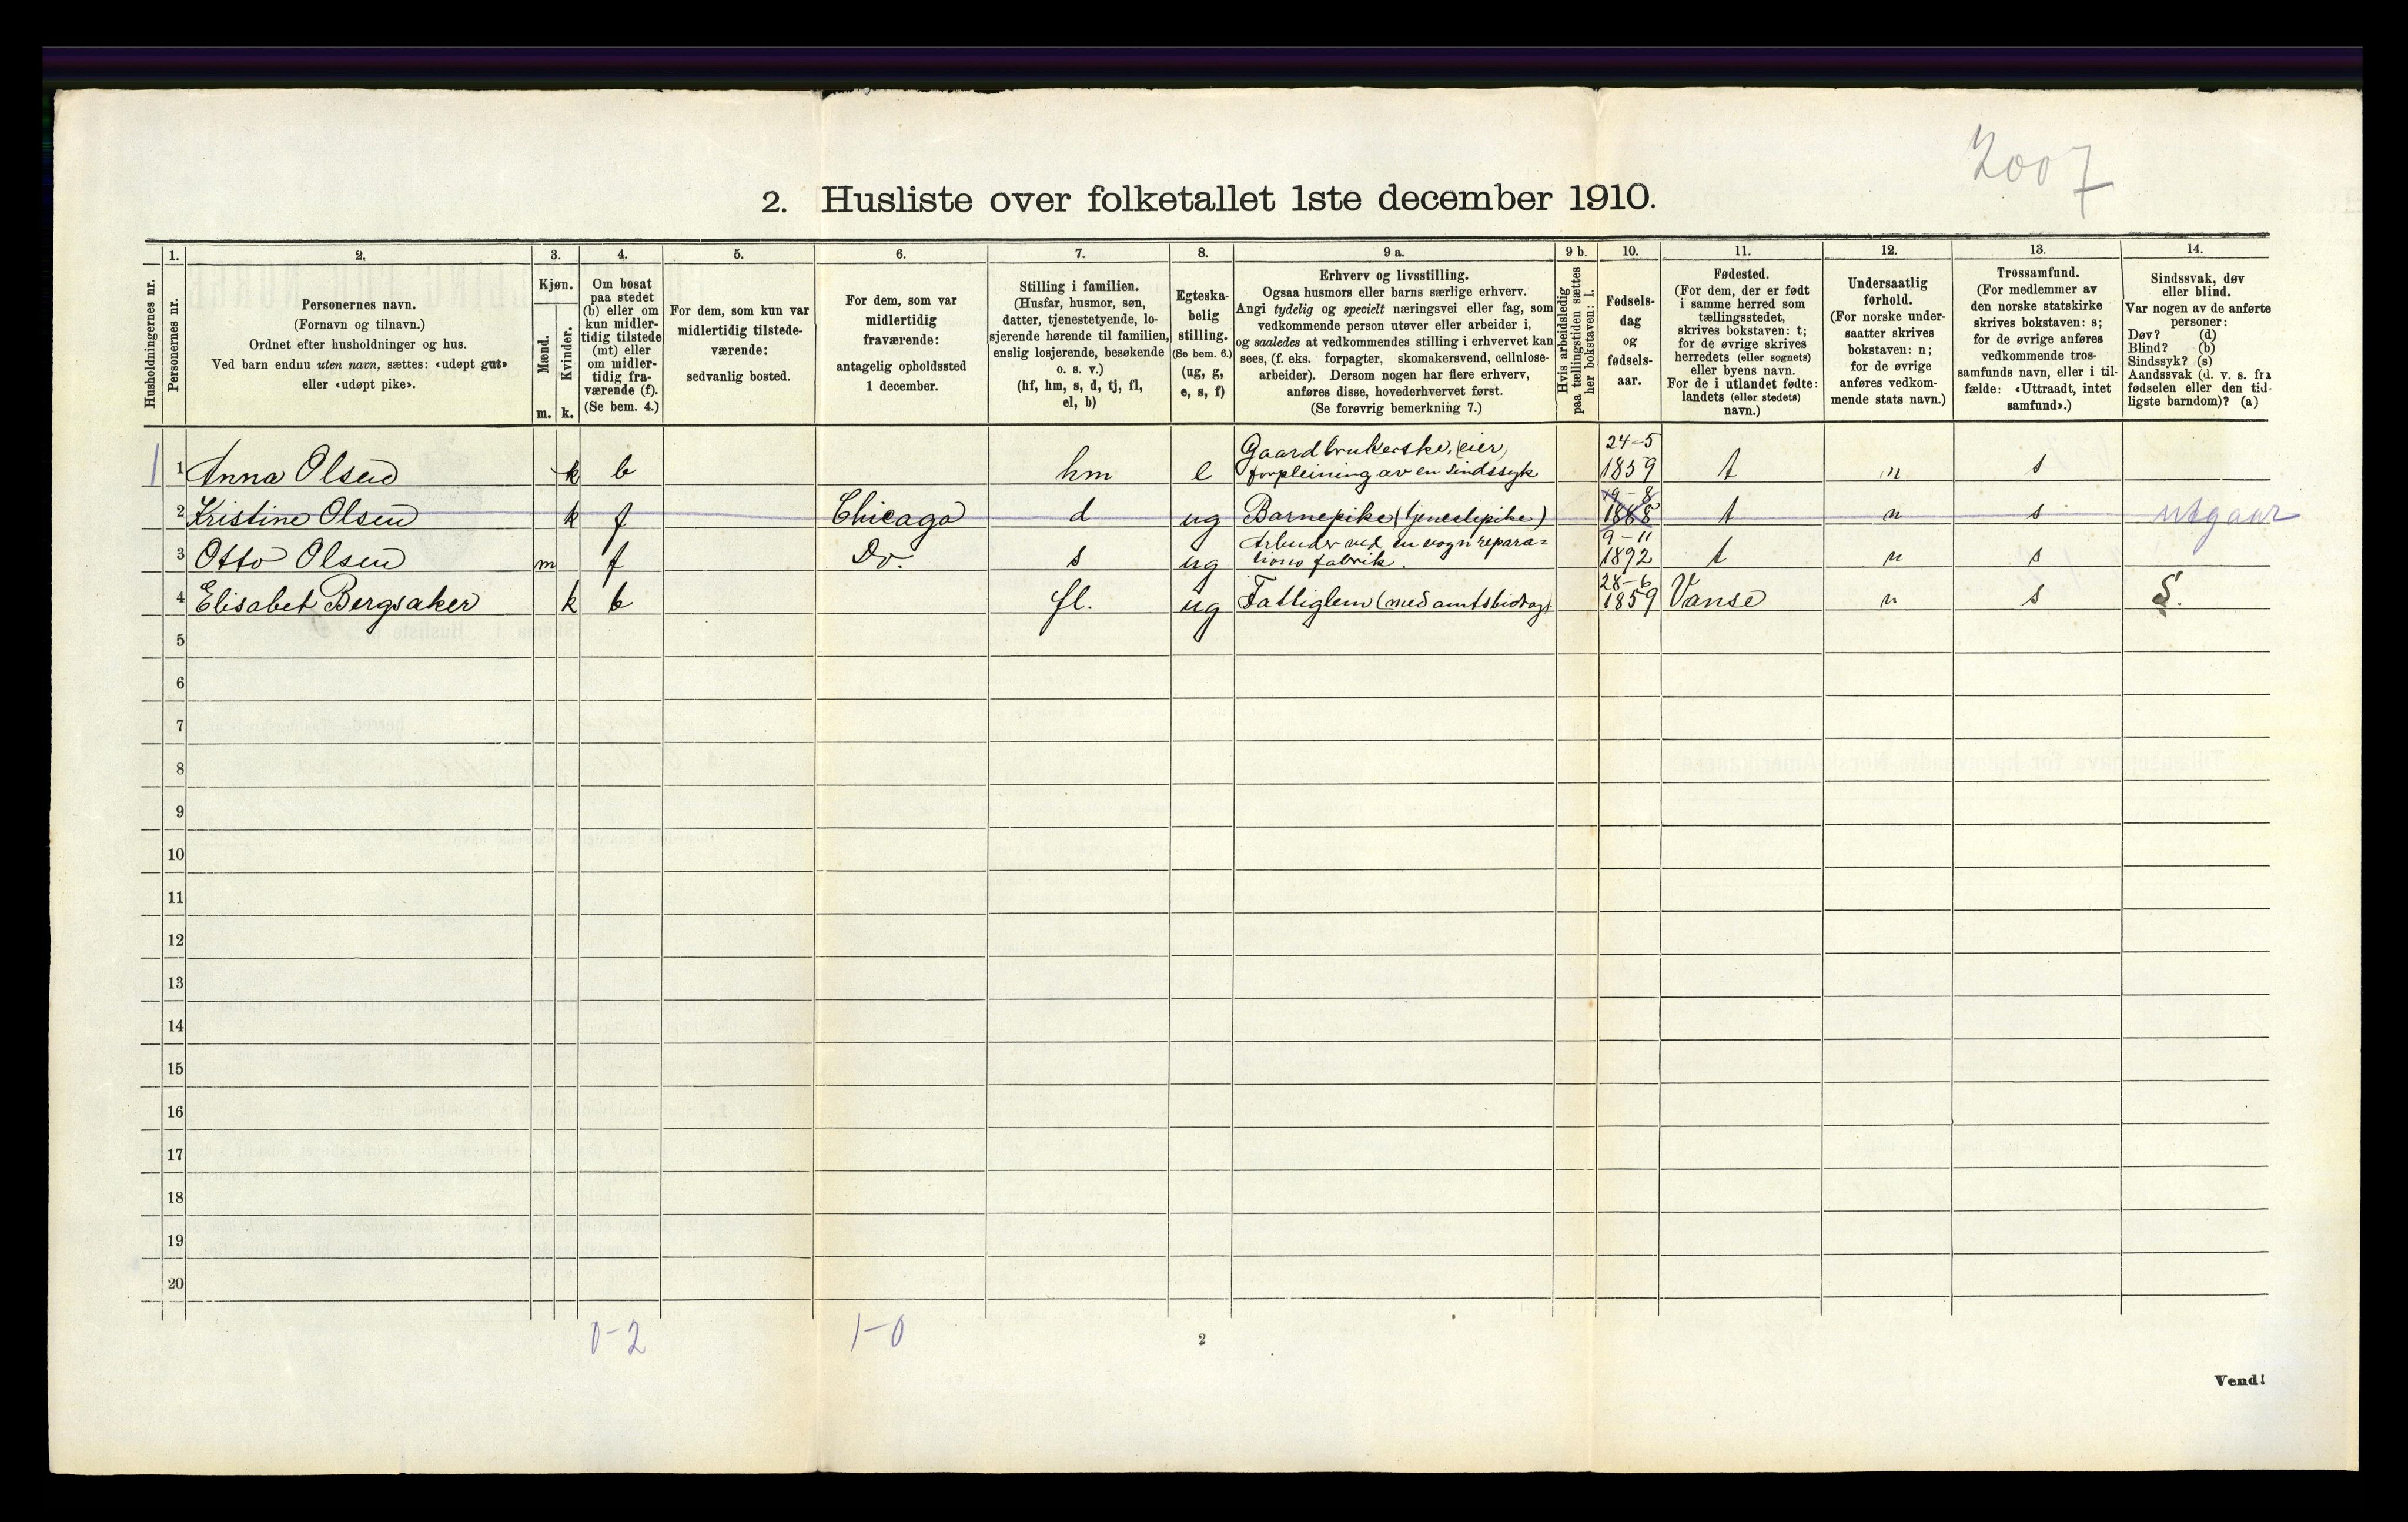 2007
2. Husliste over folketallet 1ste december 1910.
Husholdningernes nr.
1.
Personernes nr.
2.
Personernes navn.
(Fornavn og tilnavn.)
Ordnet efter husholdninger og hus.
Ved barn endnu uten navn, sættes: «udøpt gut»
eller «udøpt pike».
3.
Kjøn.
Mænd.
Kvinder.
m. k.
4.
Om bosat
paa stedet
(b) eller om
kun midler-
tidig tilstede
(mt) eller
om midler-
tidig fra-
værende (f).
(Se bem. 4.)
5.
For dem, som kun var
midlertidig tilstede-
værende:
sedvanlig bosted.
6.
For dem, som var
midlertidig
fraværende:
antagelig opholdssted
1 december.
7.
Stilling i familien.
(Husfar, husmor, søn,
datter, tjenestetyende, lo-
sjerende hørende til familien,
enslig losjerende, besøkende
o. s. v.)
(hf, hm, s, d, tj, fl,
el, b)
8.
Egteska-
belig
stilling.
(Se bem. 6.)
(ug, g,
e, s, f)
9 a.
Erhverv og livsstilling.
Ogsaa husmors eller barns særlige erhverv.
Angi tydelig og specielt næringsvei eller fag, som
vedkommende person utøver eller arbeider i,
og saaledes at vedkommendes stilling i erhvervet kan
sees, (f. eks. forpagter, skomakersvend, cellulose-
arbeider). Dersom nogen har flere erhverv,
anføres disse, hovederhvervet først.
(Se forøvrig bemerkning 7.)
9 b.
Hvis arbeidsledig
paa tællingstiden sættes
her bokstaven: l.
10.
Fødsels-
dag
og
fødsels-
aar.
11.
Fødested.
(For dem, der er født
i samme herred som
tællingsstedet,
skrives bokstaven: t;
for de øvrige skrives
herredets (eller sognets)
eller byens navn.
For de i utlandet fødte:
landets (eller stedets)
navn.)
12.
Undersaatlig
forhold.
(For norske under-
saatter skrives
bokstaven: n;
for de øvrige
anføres vedkom-
mende stats navn.)
13.
Trossamfund.
(For medlemmer av
den norske statskirke
skrives bokstaven: s;
for de øvrige anføres
vedkommende tros-
samfunds navn, eller i til-
fælde: «Uttraadt, intet
samfund».)
14.
Sindssvak, døv
eller blind.
Var nogen av de anførte
personer:
Døv? (d)
Blind? (b)
Sindssyk? (s)
Aandssvak (d. v. s. fra
fødselen eller den tid-
ligste barndom)? (a)
1 1 Anna Olsen k b hm e Gaardbrukerske, (eier) forpleining av en sindssyk 24-5 1859 t n s
2 Kristine Olsen k f Chicago d ug Barnepike (tjenestepike) 19-8 1888 t n s utgaar
3 Otto Olsen m f Do. s ug Arbeider ved en vognrepara= tions fabrik. 9-11 1892 t n s
4 Elisabet Bergsaker k b fl. ug Fattiglem (med amtsbidrag). 28-6 1859 Vanse n s S.
5
6
7
8
9
10
11
12
13
14
15
16
17
18
19
20
0-2 1-0
2
Vend!